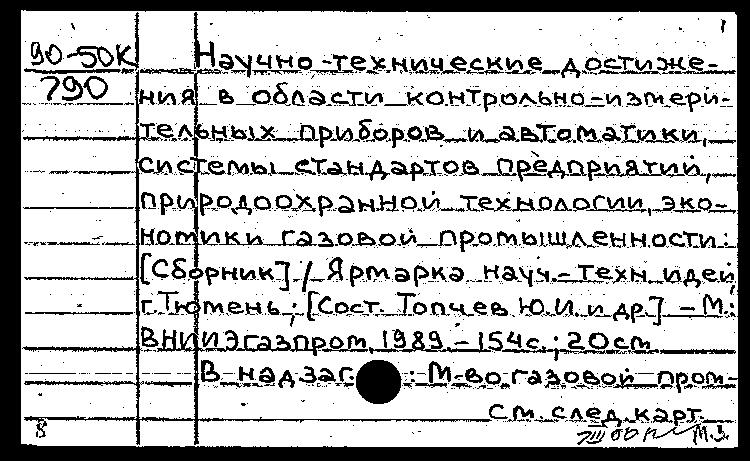 90-50К
790
Научно-технические достиже-
ния в области контрольно-измери-
тельных приборов и автоматики,
системы стандартов предприятий,
природоохранной технологии, эко-
номики газовой промышленности:
[Сборник] / Ярмарка науч.-техн идей,
г. Тюмень; [Сост. Топчев Ю.И. и др.] - М.:
ВНИИЭгазпром, 1989. - 154с.; 20см
В надзаг.: М-во газовой пром-
См. след. карт.
В М.З.